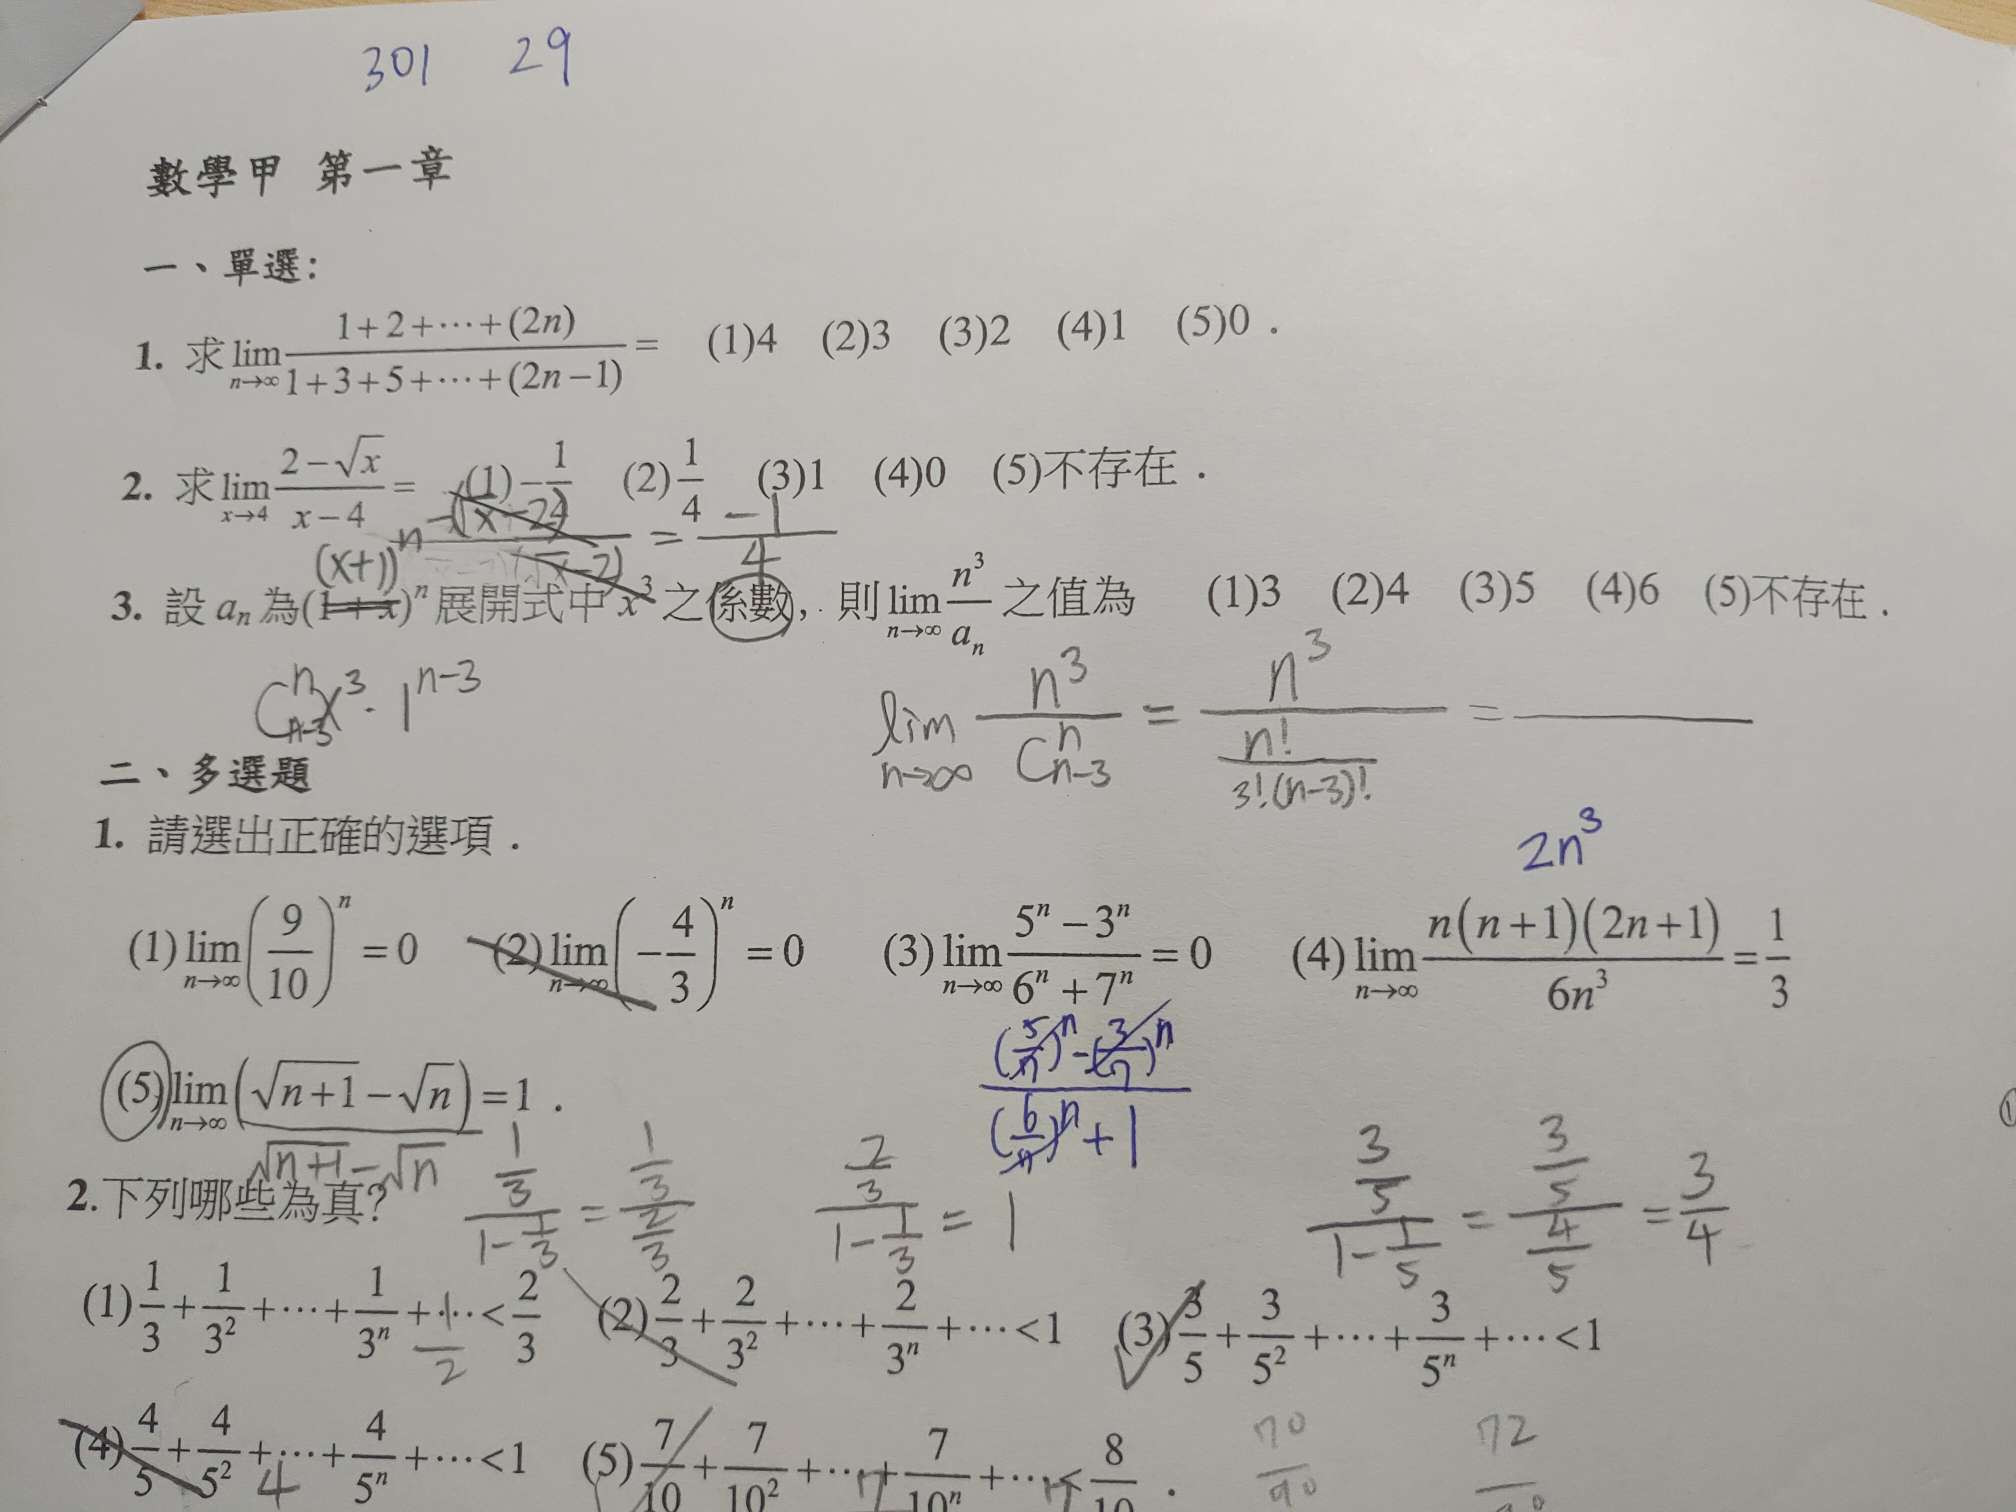 301 29
數學甲 第一章
一、單選:
1. 求 lim n→∞ (1+2+⋯+(2n))/(1+3+5+⋯+(2n−1)) = (1)4 (2)3 (3)2 (4)1 (5)0 .
2. 求 lim x→4 (2−√x)/(x−4) = (1)−1/4 (2)1/4 (3)1 (4)0 (5)不存在 .
−(√x−2) = −1/4
(x+1)^n
3. 設 aₙ 為(1+x)ⁿ 展開式中 x³ 之係數, 則 lim n→∞ n³/aₙ 之值為 (1)3 (2)4 (3)5 (4)6 (5)不存在 .
C^n_{n-3} x³ · 1^{n-3} lim n→∞ n³/C^n_{n-3} = n³/(n!/(3!(n-3)!)) =
二、多選題
1. 請選出正確的選項 .
2n³
(1) lim n→∞ (9/10)ⁿ = 0 (2) lim n→∞ (−4/3)ⁿ = 0 (3) lim n→∞ (5ⁿ−3ⁿ)/(6ⁿ+7ⁿ) = 0 (4) lim n→∞ n(n+1)(2n+1)/(6n³) = 1/3
((5/7)^n − (3/7)^n)/((6/7)^n + 1)
(5) lim n→∞ (√(n+1) − √n) = 1 .
√n+1 − √n
2.下列哪些為真?
(1/3)/(1−1/3) = (1/3)/(2/3) (2/3)/(1−1/3) = 1 (3/5)/(1−1/5) = (3/5)/(4/5) = 3/4
(1) 1/3 + 1/3² + ⋯ + 1/3ⁿ + ⋯ < 2/3 (2) 2/3 + 2/3² + ⋯ + 2/3ⁿ + ⋯ < 1 (3) 3/5 + 3/5² + ⋯ + 3/5ⁿ + ⋯ < 1
1/2
(4) 4/5 + 4/5² + ⋯ + 4/5ⁿ + ⋯ < 1 (5) 7/10 + 7/10² + ⋯ + 7/10ⁿ + ⋯ < 8/10 .
4 70 72